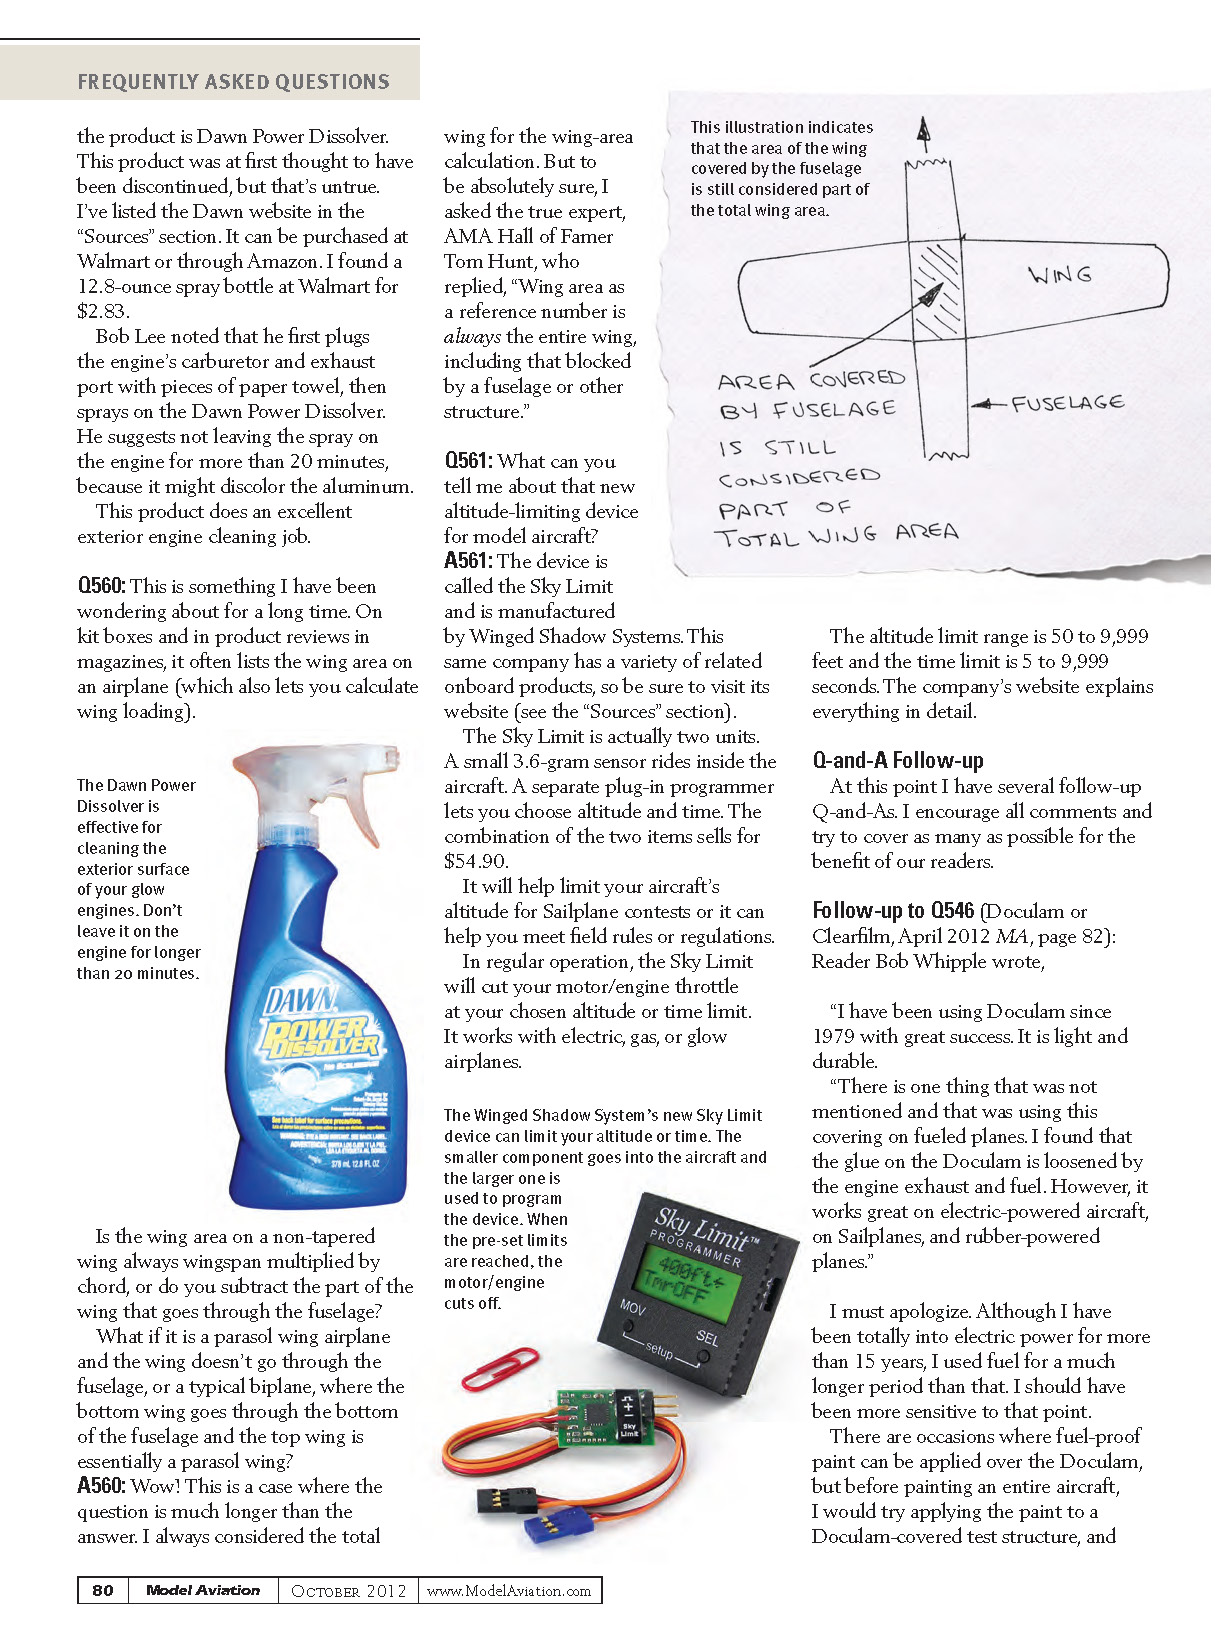 FREQUENTLY ASKED QUESTIONS
the product is Dawn Power Dissolver.
This product was at first thought to have
been discontinued, but that's untrue.
I've listed the Dawn website in the
“Sources” section. It can be purchased at
Walmart or through Amazon. I found a
12.8-ounce spray bottle at Walmart for
$2.83.
Bob Lee noted that he first plugs
the engine's carburetor and exhaust
port with pieces of paper towel, then
sprays on the Dawn Power Dissolver.
He suggests not leaving the spray on
the engine for more than 20 minutes,
because it might discolor the aluminum.
This product does an excellent
exterior engine cleaning job.
Q560: This is something I have been
wondering about for a long time. On
kit boxes and in product reviews in
magazines, it often lists the wing area on
an airplane (which also lets you calculate
wing loading).
The Dawn Power
Dissolver is
effective for
cleaning the
exterior surface
of your glow
engines. Don't
leave it on the
engine for longer
than 20 minutes.
DAWN
POWER
DISSOLVER
See back label for surface precautions.
378 mL 12.8 FL OZ
Is the wing area on a non-tapered
wing always wingspan multiplied by
chord, or do you subtract the part of the
wing that goes through the fuselage?
What if it is a parasol wing airplane
and the wing doesn't go through the
fuselage, or a typical biplane, where the
bottom wing goes through the bottom
of the fuselage and the top wing is
essentially a parasol wing?
A560: Wow! This is a case where the
question is much longer than the
answer. I always considered the total
wing for the wing-area
calculation. But to
be absolutely sure, I
asked the true expert,
AMA Hall of Famer
Tom Hunt, who
replied, “Wing area as
a reference number is
always the entire wing,
including that blocked
by a fuselage or other
structure.”
Q561: What can you
tell me about that new
altitude-limiting device
for model aircraft?
A561: The device is
called the Sky Limit
and is manufactured
by Winged Shadow Systems. This
same company has a variety of related
onboard products, so be sure to visit its
website (see the “Sources” section).
The Sky Limit is actually two units.
A small 3.6-gram sensor rides inside the
aircraft. A separate plug-in programmer
lets you choose altitude and time. The
combination of the two items sells for
$54.90.
It will help limit your aircraft's
altitude for Sailplane contests or it can
help you meet field rules or regulations.
In regular operation, the Sky Limit
will cut your motor/engine throttle
at your chosen altitude or time limit.
It works with electric, gas, or glow
airplanes.
The Winged Shadow System's new Sky Limit
device can limit your altitude or time. The
smaller component goes into the aircraft and
the larger one is
used to program
the device. When
the pre-set limits
are reached, the
motor/engine
cuts off.
Sky Limit™
PROGRAMMER
400ft
TmrOFF
MOV
SEL
setup
Sky
Limit
This illustration indicates
that the area of the wing
covered by the fuselage
is still considered part of
the total wing area.
WING
AREA COVERED
BY FUSELAGE
IS STILL
CONSIDERED
PART OF
TOTAL WING AREA
FUSELAGE
The altitude limit range is 50 to 9,999
feet and the time limit is 5 to 9,999
seconds. The company's website explains
everything in detail.
Q-and-A Follow-up
At this point I have several follow-up
Q-and-As. I encourage all comments and
try to cover as many as possible for the
benefit of our readers.
Follow-up to Q546 (Doculam or
Clearfilm, April 2012 MA, page 82):
Reader Bob Whipple wrote,
“I have been using Doculam since
1979 with great success. It is light and
durable.
“There is one thing that was not
mentioned and that was using this
covering on fueled planes. I found that
the glue on the Doculam is loosened by
the engine exhaust and fuel. However, it
works great on electric-powered aircraft,
on Sailplanes, and rubber-powered
planes.”
I must apologize. Although I have
been totally into electric power for more
than 15 years, I used fuel for a much
longer period than that. I should have
been more sensitive to that point.
There are occasions where fuel-proof
paint can be applied over the Doculam,
but before painting an entire aircraft,
I would try applying the paint to a
Doculam-covered test structure, and
80 Model Aviation OCTOBER 2012 www.ModelAviation.com